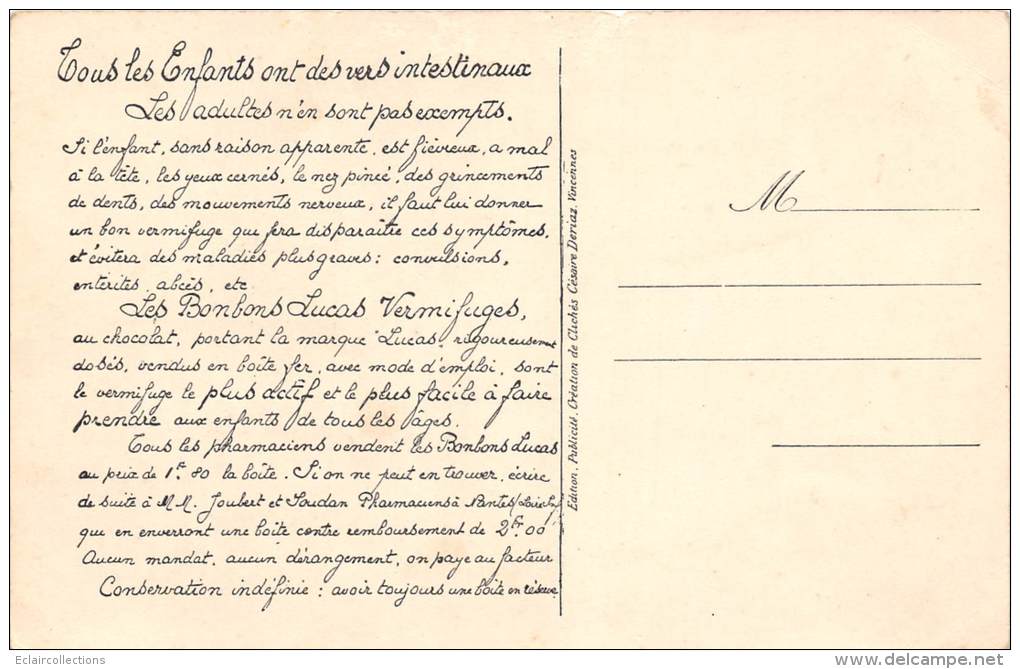 Tous les Enfants ont des vers intestinaux
Les adultes n'en sont pas exempts.
Si l'enfant, sans raison apparente, est fiévreux, a mal
à la tête, les yeux cernés, le nez pincé, des grincements
de dents, des mouvements nerveux, il faut lui donner
un bon vermifuge qui fera disparaître ces symptômes,
et évitera des maladies plus graves: convulsions,
entérites, abcès, etc
Les Bonbons Lucas Vermifuges,
au chocolat, portant la marque "Lucas, rigoureusement
dosés, vendus en boîte fer, avec mode d'emploi, sont
le vermifuge le plus actif et le plus facile à faire
prendre aux enfants de tous les âges.
Tous les pharmaciens vendent les Bonbons Lucas
au prix de 1f. 80 la boîte. Si on ne peut en trouver, écrire
de suite à MM. Joubert et Soudan Pharmaciens à Nantes (Loire Inf
qui en enverront une boîte contre remboursement de 2fr 00
Aucun mandat, aucun dérangement, on paye au facteur
Conservation indéfinie : avoir toujours une boîte en réserve
Edition, Publicité, Création de Clichés Césaire Deriaz, Vincennes
M
Eclaircollections
www.delcampe.net